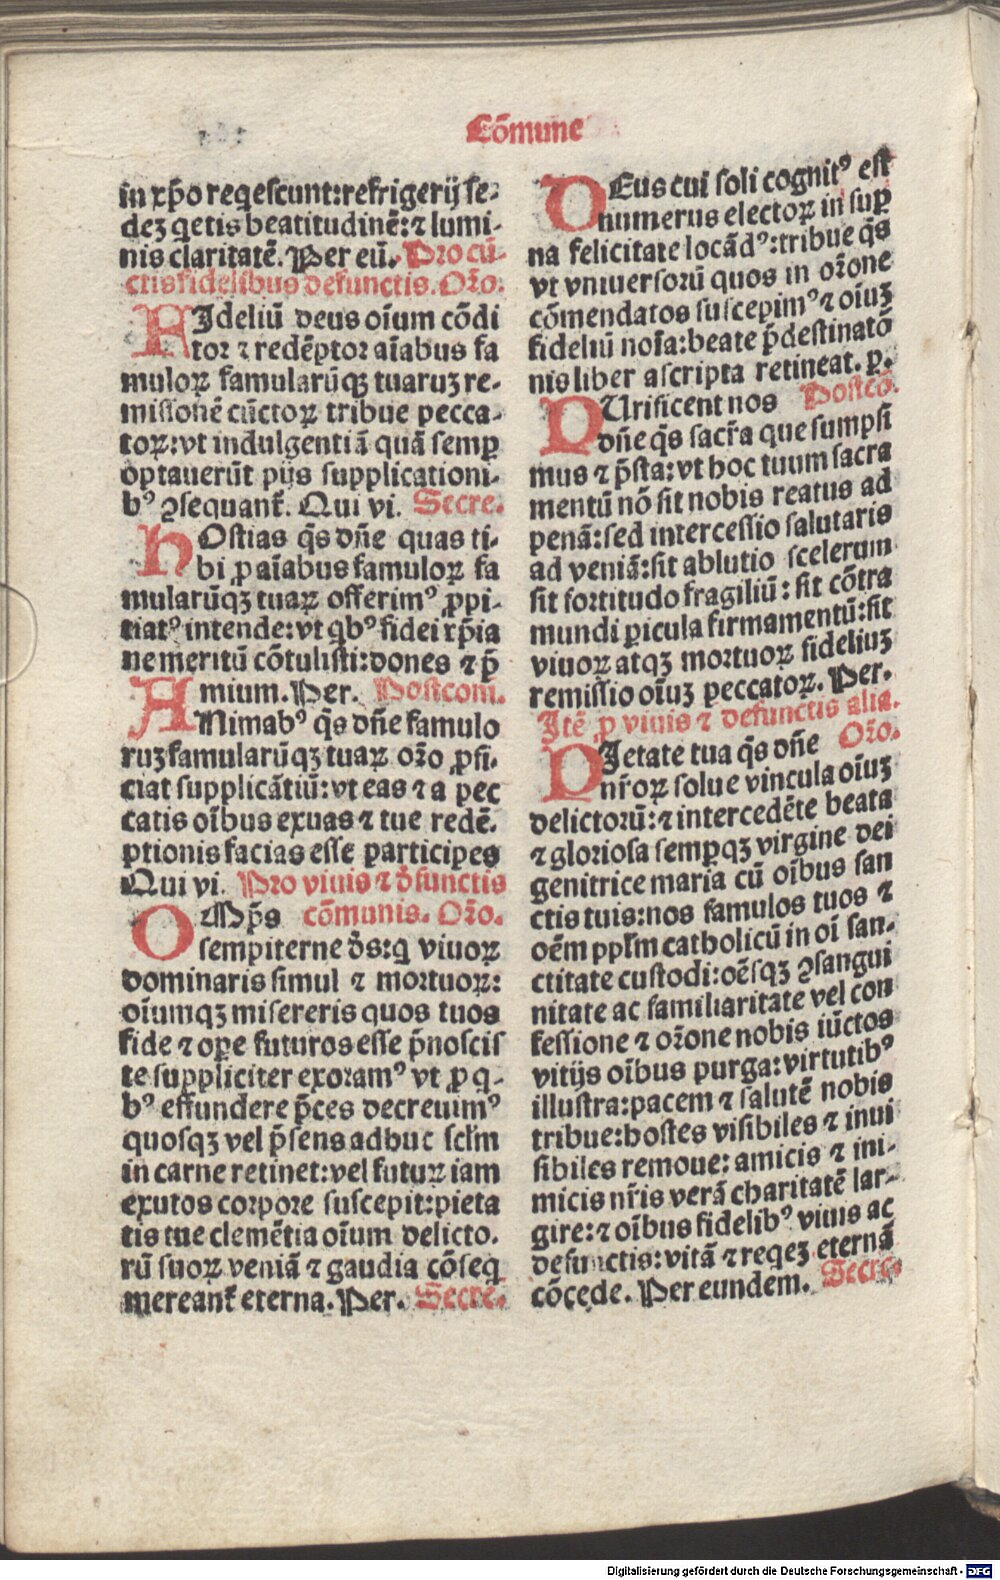 Cōmune
in xp̄o reqescunt:refrigerij se-
dez qetis beatitudinē:⁊ lumi-
nis claritatē. Per eū. Pro cū-
ctis fidelibus defunctis. Or̄o.
FIdeliū deus oīum cōdi
tor ⁊ redēptor aīabus fa
muloꝝ famularūqꝫ tuaruꝫ re-
missionē cūctoꝝ tribue pecca-
toꝝ:vt indulgentiā quā semꝑ
optauerūt pijs supplicationi-
bꝰ ꝯsequant᷑. Qui vi. Secre.
HOstias q̄s dn̄e quas ti-
bi ꝓ aīabus famuloꝝ fa
mularūqꝫ tuaꝝ offerimꝰ ꝓpi-
tiatꝰ intende:vt qbꝰ fidei xp̄ia
ne meritū cōtulisti:dones ⁊ p̄
mium. Per. Postcom.
ANimabꝰ q̄s dn̄e famulo
ruꝫ famularūqꝫ tuaꝝ or̄o ꝓfi-
ciat supplicātiū:vt eas ⁊ a pec
catis oībus exuas ⁊ tue redē-
ptionis facias esse participes
Qui vi. Pro viuis ⁊ d̄functis
OMp̄s cōmunis. Or̄o.
sempiterne d̄s:q viuoꝝ
dominaris simul ⁊ mortuoꝝ:
oīumqꝫ misereris quos tuos
fide ⁊ oꝑe futuros esse p̄noscis
te suppliciter exoramꝰ vt ꝓ q-
bꝰ effundere p̄ces decreuimꝰ
quosqꝫ vel p̄sens adhuc scl̄m
in carne retinet:vel futuꝝ iam
exutos corpore suscepit:pieta
tis tue clemētia oīum delicto-
rū suoꝝ veniā ⁊ gaudia cōseq
mereant᷑ eterna. Per. Secre.
DEus cui soli cognitꝰ est
numerus electoꝝ in suꝑ
na felicitate locādꝰ:tribue q̄s
vt vniuersorū quos in or̄one
cōmendatos suscepimꝰ ⁊ oīuꝫ
fideliū noīa:beate p̄destinatō
nis liber ascripta retineat. ꝑ.
PUrificent nos Postcō.
dn̄e q̄s sacr̄a que sumpsi
mus ⁊ p̄sta:vt hoc tuum sacra
mentū nō sit nobis reatus ad
penā:sed intercessio salutaris
ad veniā:sit ablutio scelerum
sit fortitudo fragiliū:sit cōtra
mundi ꝑicula firmamentū:sit
viuoꝝ atqꝫ mortuoꝝ fideliuꝫ
remissio oīuꝫ peccatoꝝ. Per.
Itē ꝓ viuis ⁊ defunctis alia.
PIetate tua q̄s dn̄e Or̄o.
nr̄oꝝ solue vincula oīuꝫ
delictorū:⁊ intercedēte beata
⁊ gloriosa semꝑqꝫ virgine dei
genitrice maria cū oībus san
ctis tuis:nos famulos tuos ⁊
oēm ppl̄m catholicū in oī san-
ctitate custodi:oēsqꝫ ꝯsangui
nitate ac familiaritate vel con
fessione ⁊ or̄one nobis iūctos
vitijs oībus purga:virtutibꝰ
illustra:pacem ⁊ salutē nobis
tribue:hostes visibiles ⁊ inui
sibiles remoue:amicis ⁊ ini-
micis nr̄is verā charitatē lar-
gire:⁊ oībus fidelibꝰ viuis ac
defunctis:vitā ⁊ reqeꝫ eternā
cōcede. Per eundem. Secre.
Digitalisierung gefördert durch die Deutsche Forschungsgemeinschaft - DFG